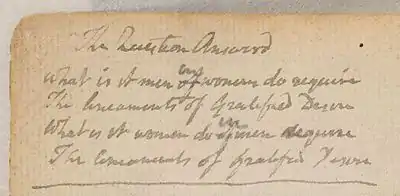 The Question Answerd
What is it men in women do require
The lineaments of Gratified Desire
What is it women do in men require
The lineaments of Gratified Desire